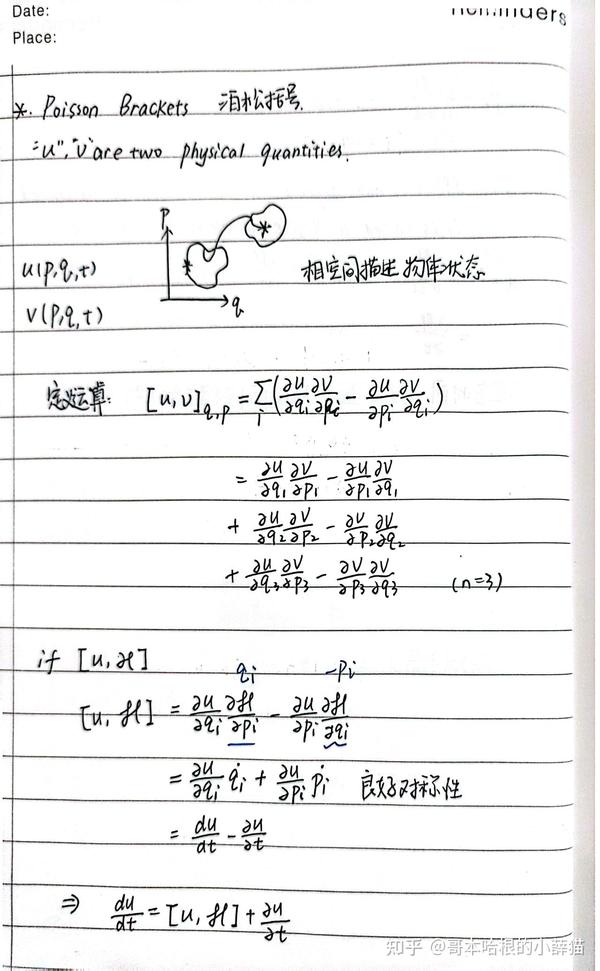 Date:
Place:
*. Poisson Brackets 泊松括号.
"u", "v" are two physical quantities.
u(p,q,t)
v(p,q,t)
p
q
相空间描述物体状态
定义运算: [u,v]_{q,p} = ∑_i (∂u/∂q_i ∂v/∂p_i - ∂u/∂p_i ∂v/∂q_i)
= ∂u/∂q₁ ∂v/∂p₁ - ∂u/∂p₁ ∂v/∂q₁
+ ∂u/∂q₂ ∂v/∂p₂ - ∂v/∂p₂ ∂v/∂q₂
+ ∂u/∂q₃ ∂v/∂p₃ - ∂v/∂p₃ ∂v/∂q₃ (n=3)
if [u,ℋ]
q̇_i -ṗ_i
[u,ℋ] = ∂u/∂q_i ∂ℋ/∂p_i - ∂u/∂p_i ∂ℋ/∂q_i
= ∂u/∂q_i q̇_i + ∂u/∂p_i ṗ_i 良好对称性
= du/dt - ∂u/∂t
⇒ du/dt = [u,ℋ] + ∂u/∂t
知乎 @哥本哈根的小薛猫